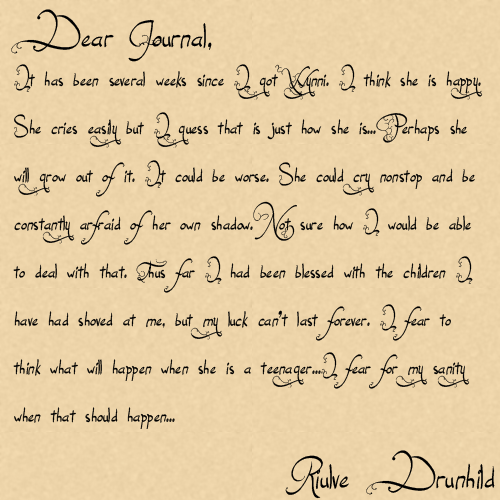 Dear Journal,
It has been several weeks since I got Wynni. I think she is happy.
She cries easily but I guess that is just how she is... Perhaps she
will grow out of it. It could be worse. She could cry nonstop and be
constantly arfraid of her own shadow. Not sure how I would be able
to deal with that. Thus far I had been blessed with the children I
have had shoved at me, but my luck can't last forever. I fear to
think what will happen when she is a teenager... I fear for my sanity
when that should happen...
Riulve Drunhild